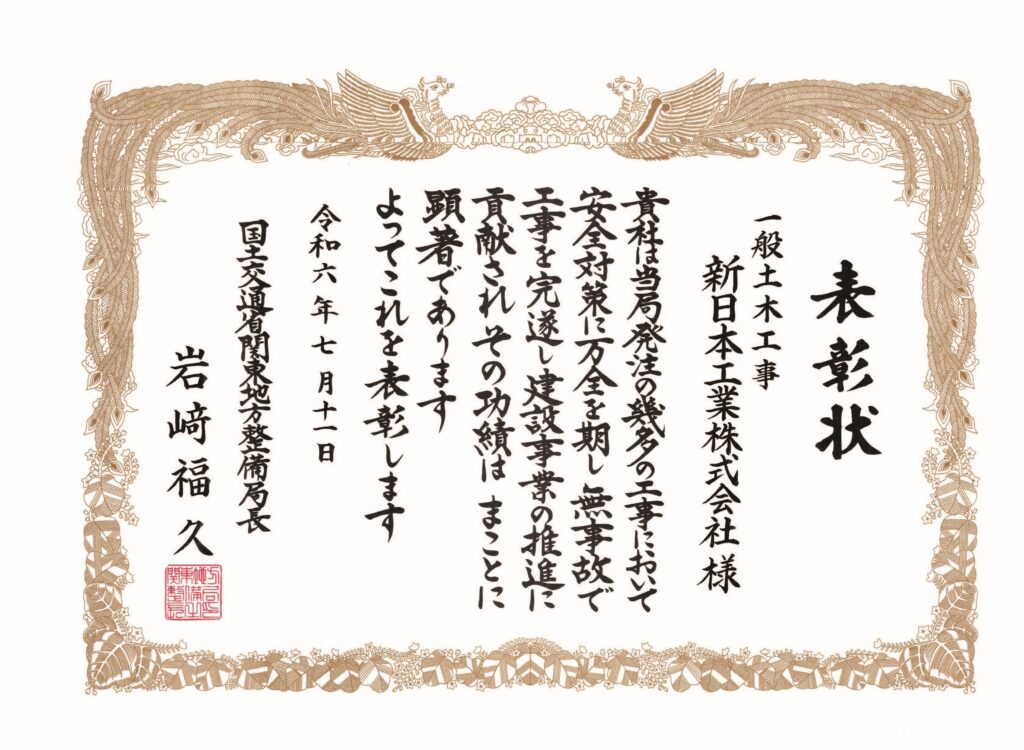 表彰状
一般土木工事
新日本工業株式会社様
貴社は当局発注の幾多の工事において
安全対策に万全を期し無事故で
工事を完遂し建設事業の推進に
貢献されその功績は まことに
顕著であります
よってこれを表彰します
令和六年七月十一日
国土交通省関東地方整備局長
岩﨑福久